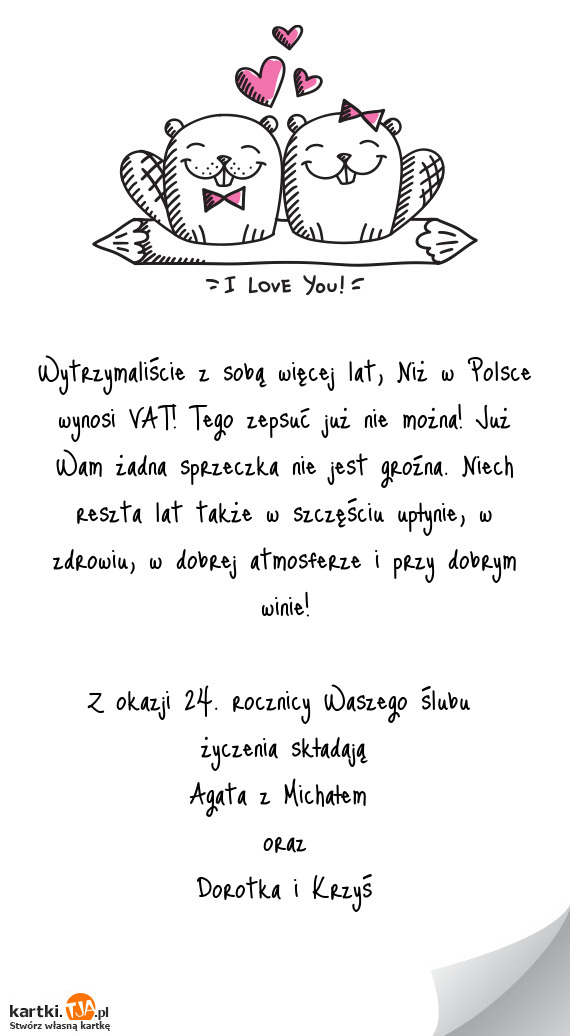 I LOVE YOU!
Wytrzymaliście z sobą więcej lat, Niż w Polsce
wynosi VAT! Tego zepsuć już nie można! Już
Wam żadna sprzeczka nie jest groźna. Niech
reszta lat także w szczęściu upłynie, w
zdrowiu, w dobrej atmosferze i przy dobrym
winie!
Z okazji 24. rocznicy Waszego ślubu
życzenia składają
Agata z Michałem
oraz
Dorotka i Krzyś
kartki.TJA.pl
Stwórz własną kartkę